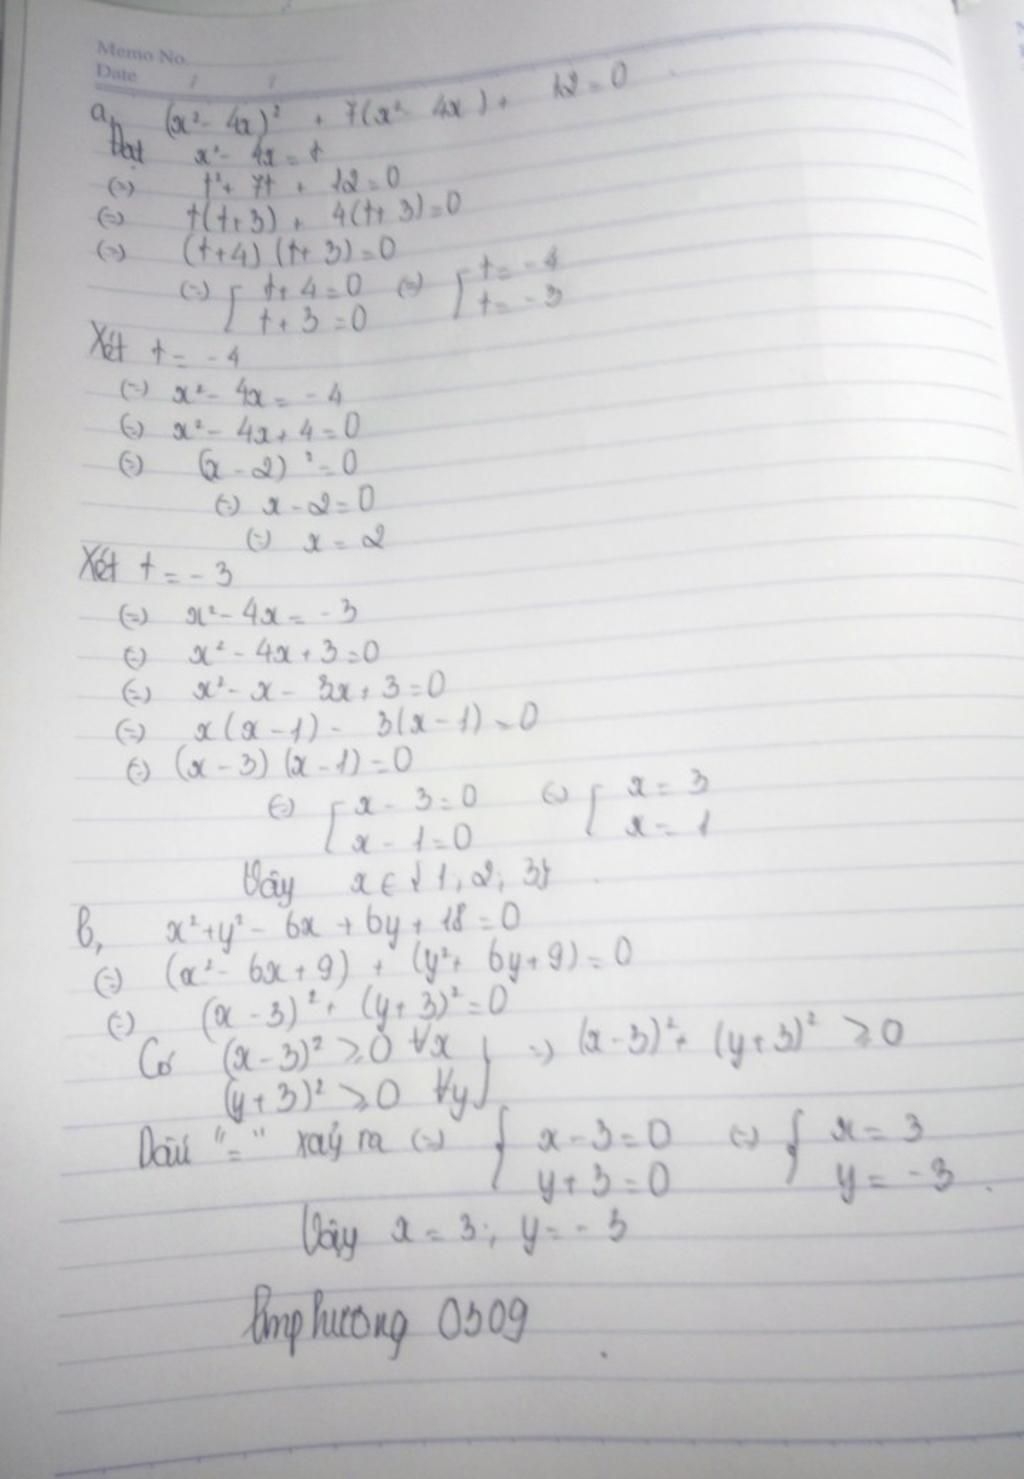 Memo No.
Date / /
a, (x² - 4x)² + 7(x² - 4x) + 12 = 0
Đặt x² - 4x = t
(=) t² + 7t + 12 = 0
(=) t(t+3) + 4(t+3) = 0
(=) (t+4) (t+3) = 0
(=) [ t+4 = 0 (=) [ t = -4
t+3 = 0 t = -3
Xét t = -4
(=) x² - 4x = -4
(=) x² - 4x + 4 = 0
(=) (x - 2)² = 0
(=) x - 2 = 0
(=) x = 2
Xét t = -3
(=) x² - 4x = -3
(=) x² - 4x + 3 = 0
(=) x² - x - 3x + 3 = 0
(=) x(x - 1) - 3(x - 1) = 0
(=) (x - 3) (x - 1) = 0
(=) [ x - 3 = 0 (=) [ x = 3
x - 1 = 0 x = 1
Vậy x ∈ {1; 2; 3}
b, x² + y² - 6x + 6y + 18 = 0
(=) (x² - 6x + 9) + (y² + 6y + 9) = 0
(=) (x - 3)² + (y + 3)² = 0
Có (x - 3)² ≥ 0 ∀x } =) (x - 3)² + (y + 3)² ≥ 0
(y + 3)² ≥ 0 ∀y
Dấu "=" xảy ra (=) { x - 3 = 0 (=) { x = 3
y + 3 = 0 y = -3
Vậy x = 3; y = -3
0309